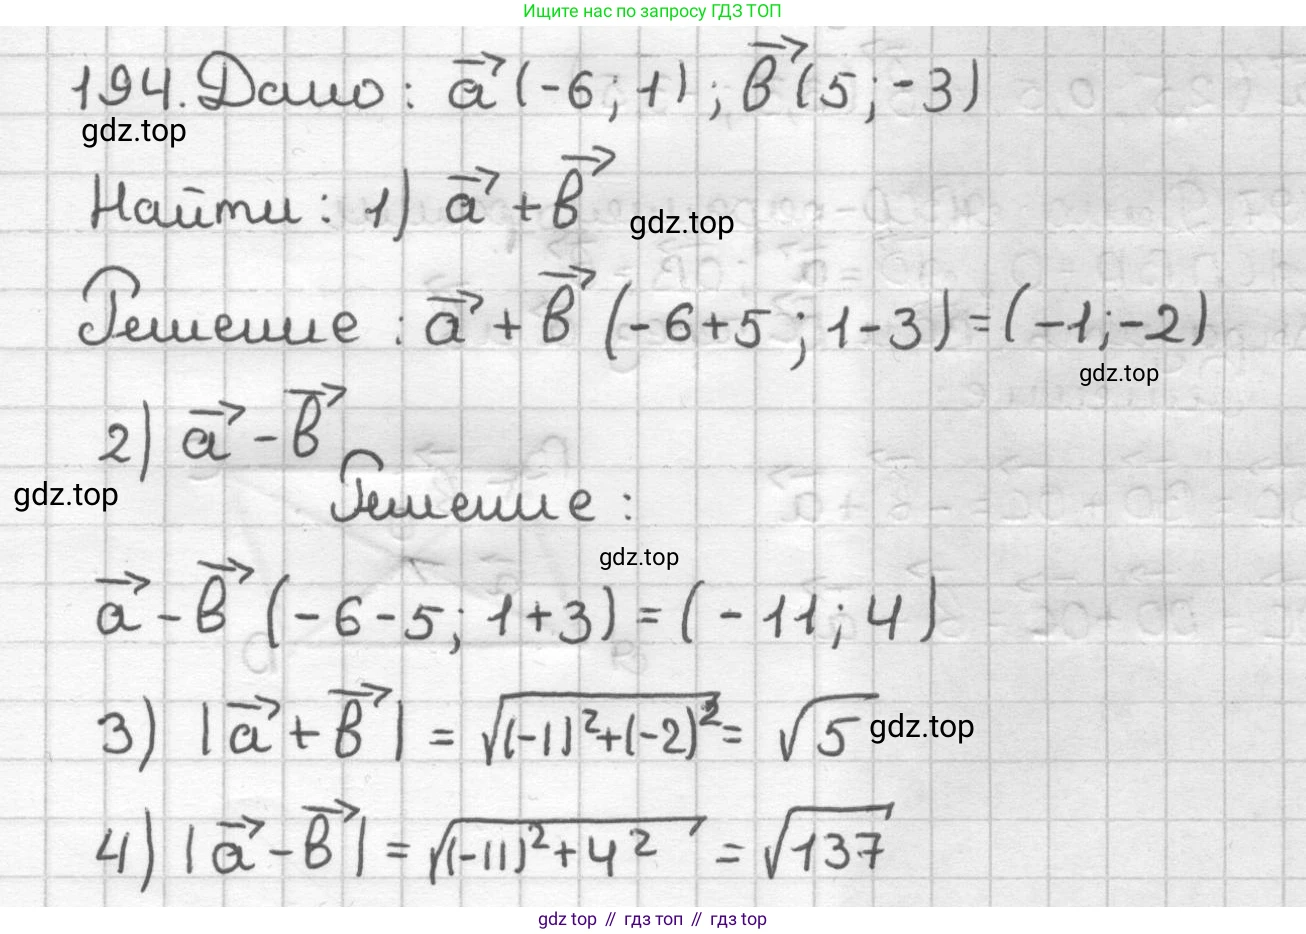 Ищите нас по запросу ГДЗ ТОП
194. Дано: a⃗ (-6; 1); b⃗ (5; -3)
gdz.top
Найти: 1) a⃗ + b⃗
gdz.top
Решение: a⃗ + b⃗ (-6+5; 1-3) = (-1; -2)
gdz.top
2) a⃗ - b⃗
gdz.top
Решение:
gdz.top
a⃗ - b⃗ (-6-5; 1+3) = (-11; 4)
3) |a⃗ + b⃗| = √((-1)²+(-2)²) = √5
gdz.top
4) |a⃗ - b⃗| = √((-11)²+4²) = √137
gdz top // гдз топ // gdz top